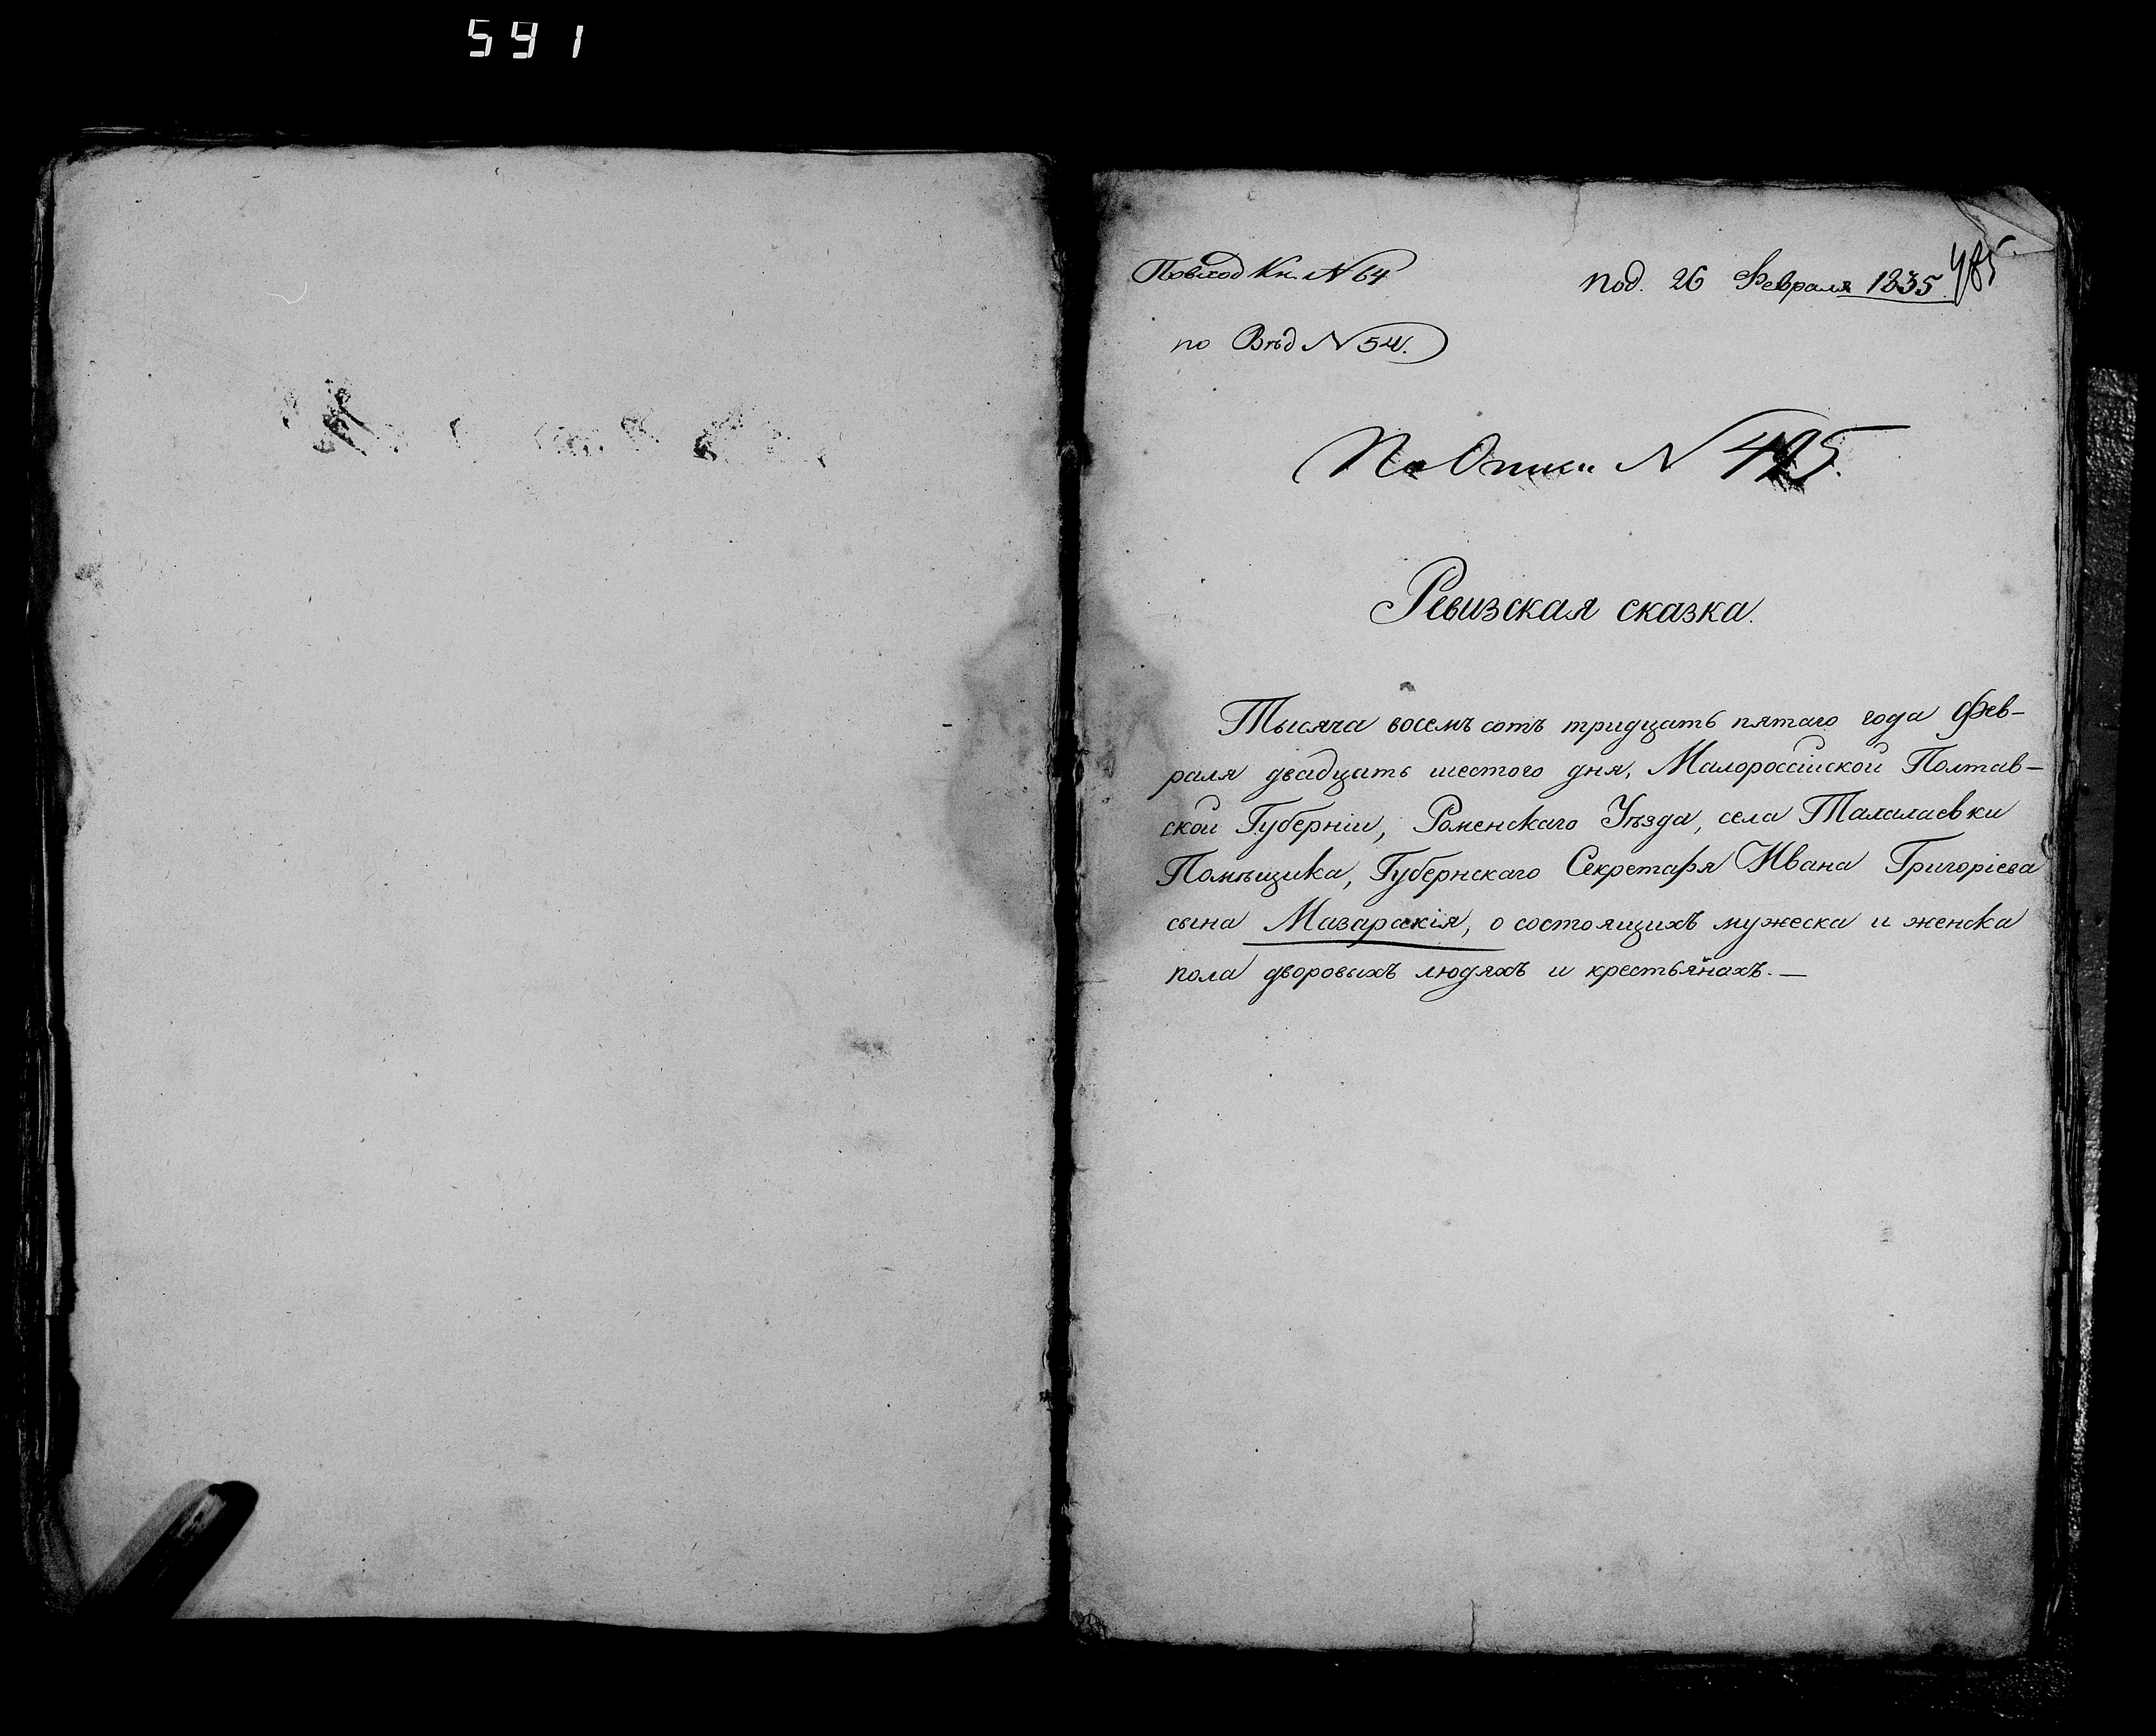 591
По вход Кн. N 64
под. 26 Февраля 1835.
485
по Вѣд N 54.
По Описи N 495.
Ревизская сказка.
Тысяча восемъ сотъ тридцать пятаго года Фев-
раля двадцать шестого дня, Малороссійской Полтав-
ской Губерніи, Роменскаго Уѣзда, села Талалаевки
Помѣщика, Губернскаго Секретаря Ивана Григоріева
сына Мазаракія, о состоящихъ мужеска и женска
пола дворовыхъ людяхъ и крестьянахъ. —